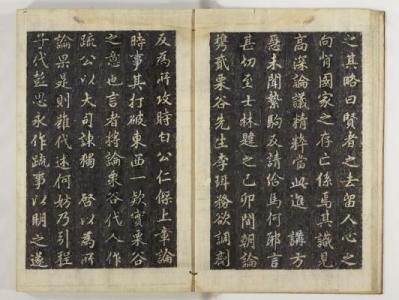 之其略曰賢者之去留人心之
向背國家之存亡係焉其識見
高深論議精粹當此進講方
未聞縶駒反請給馬何耶言
甚切至士林韙之己卯間朝論
携貳栗谷先生李珥務欲調劑
反為所攻時白公仁傑上章論
時事其打破東西一款實栗谷
之意也言者將論栗谷代人作
疏公以大司諫獨啓以為所
論果是則雖代述何妨乃引程
子代彭思永作疏事以明之遂